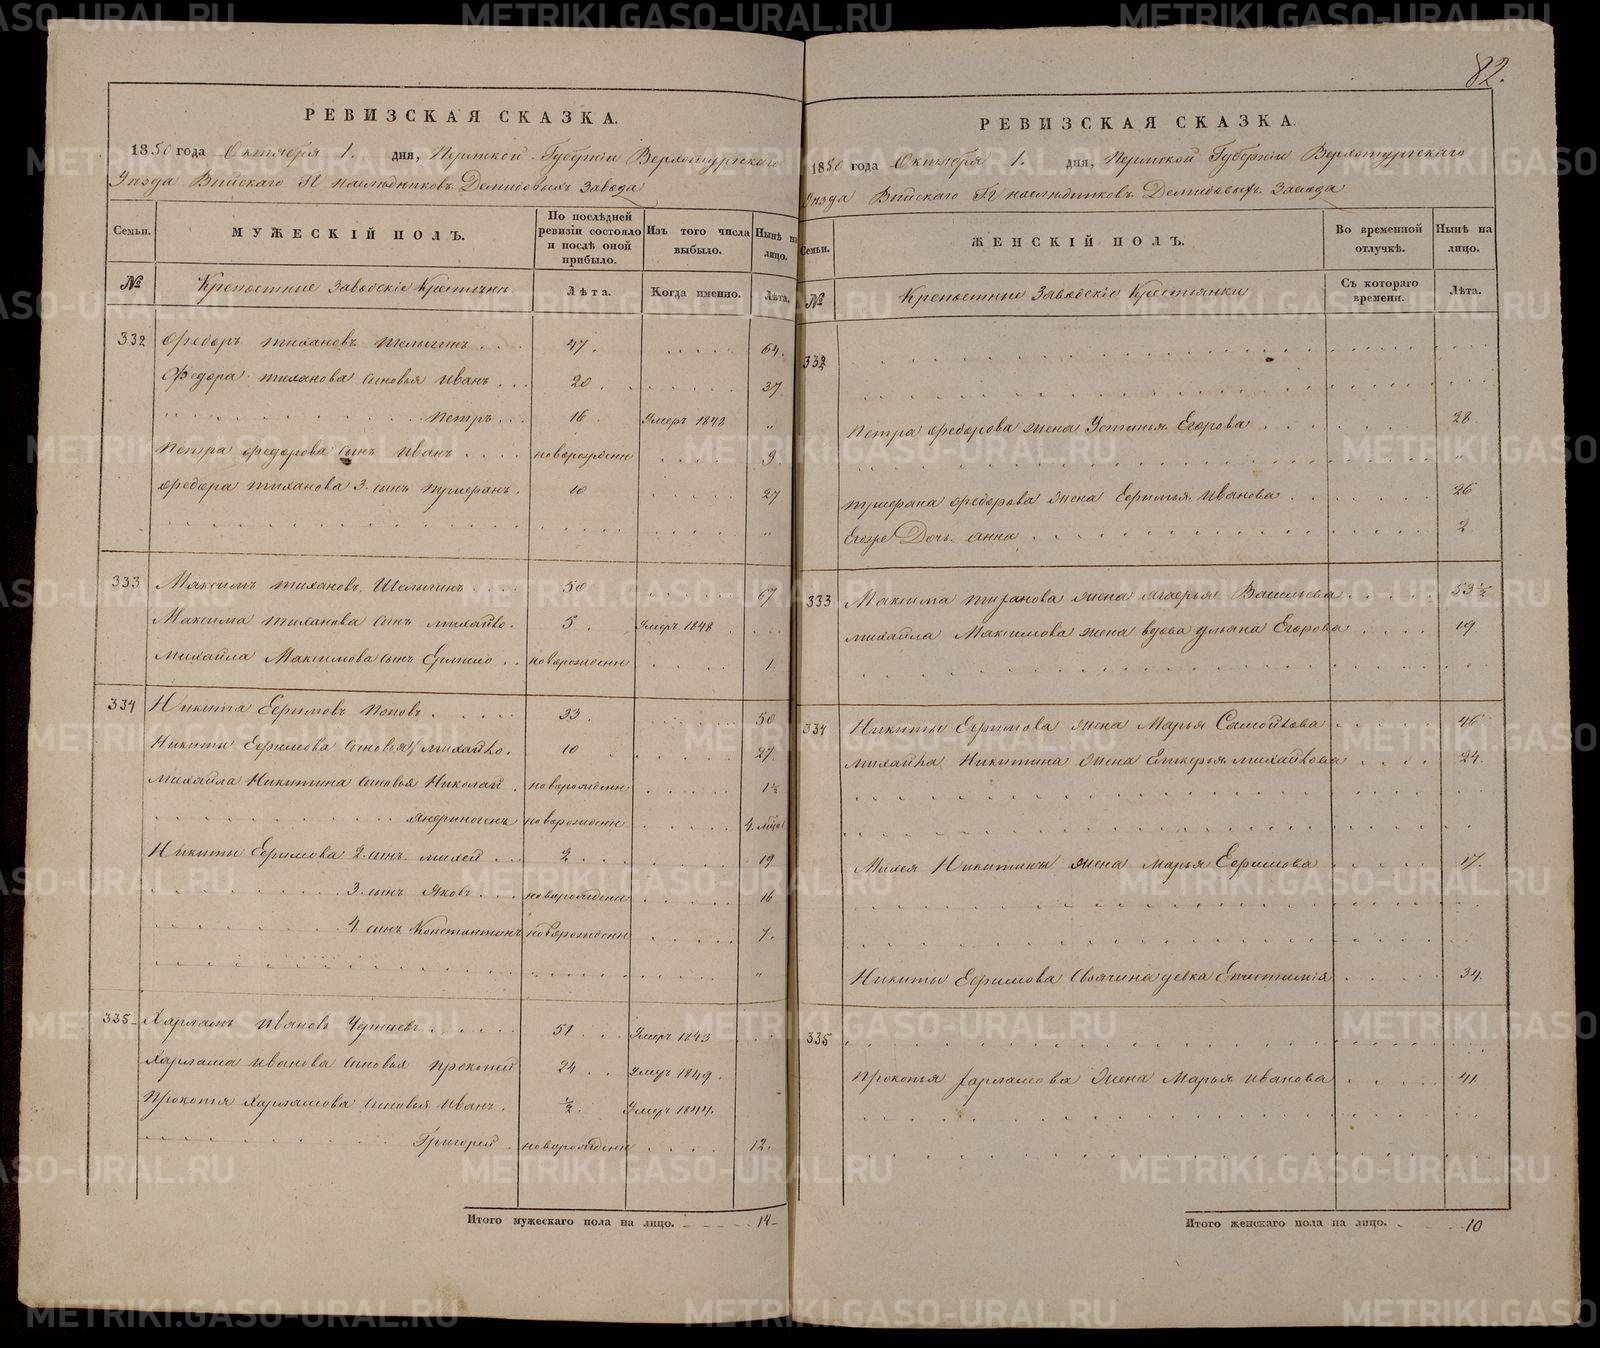 82.
РЕВИЗСКАЯ СКАЗКА.
1850 года Октября 1. дня, Пермской Губернiи Верхотурскаго
Уѣзда Выйскаго Гг наслѣдниковъ Демидовыхъ Завода
Семьи. МУЖЕСКІЙ ПОЛЪ. По послѣдней ревизіи состояло и послѣ оной прибыло. Изъ того числа выбыло. Нынѣ на лицо.
№ Крепостные Заводскiе Крестьяни Лѣта. Когда именно. Лѣта.
332 Федоръ Тихановъ Шелыгинъ 47. 64.
Федора Тиханова сыновья Иванъ 20 37
Петръ 16 Умеръ 1848 „
Петра Федорова сынъ Иванъ новорожденн 9.
Федора Тиханова 3. сынъ 10 27
„
333 Максимъ Тихановъ Шелыгинъ 50 67
Максима Тиханова сынъ Михайло. 5. Умеръ 1848.
Михайла Максимова сынъ новорожденн 1.
334 Никита Ефимовъ Поповъ. 33. 50
Никиты Ефимова сыновья Михайло. 10 27.
Михайла Никитина сыновья Николай новорожденн 1½
новорожденн 4. мѣсец
Никиты Ефимова 2. сынъ Михей 2 19
3. сынъ Яковъ новорожденн 16
4 сынъ Константинъ новорожденн 7.
„
335 Харламъ Ивановъ 51 Умеръ 1843
Харлама Иванова сыновья Прокопей 24 Умеръ 1849.
Прокопья Харламова сыновья Иванъ. ½ Умеръ 1844.
Григорей новорожденн 12.
Итого мужескаго пола на лицо. 14
РЕВИЗСКАЯ СКАЗКА.
1850 года Октября 1. дня, Пермской Губернiи Верхотурскаго
Уѣзда Выйскаго Гг наслѣдниковъ Демидовыхъ Завода
Семьи. ЖЕНСКІЙ ПОЛЪ. Во временной отлучкѣ. Нынѣ на лицо.
№ Крепостные Заводскiе Крестьянки Съ котораго времени. Лѣта.
332
Петра Федорова жена Устинья Егорова 28
Федорова жена Ефимья Иванова 26
Дочь Анна 2
333 Максима Тиханова жена Васильева 53½
Михайла Максимова жена вдова Ульяна Егорова 19
334 Никиты Ефимова жена Марья Самойлова 46
Михайла Никитина жена Михайлова 24
Михея Никитина жена Марья Ефимова 17.
Никиты Ефимова Своячина девка 34.
335
Прокопья Харламова Жена Марья Иванова 41
Итого женскаго пола на лицо. 10
METRIKI.GASO-URAL.RU